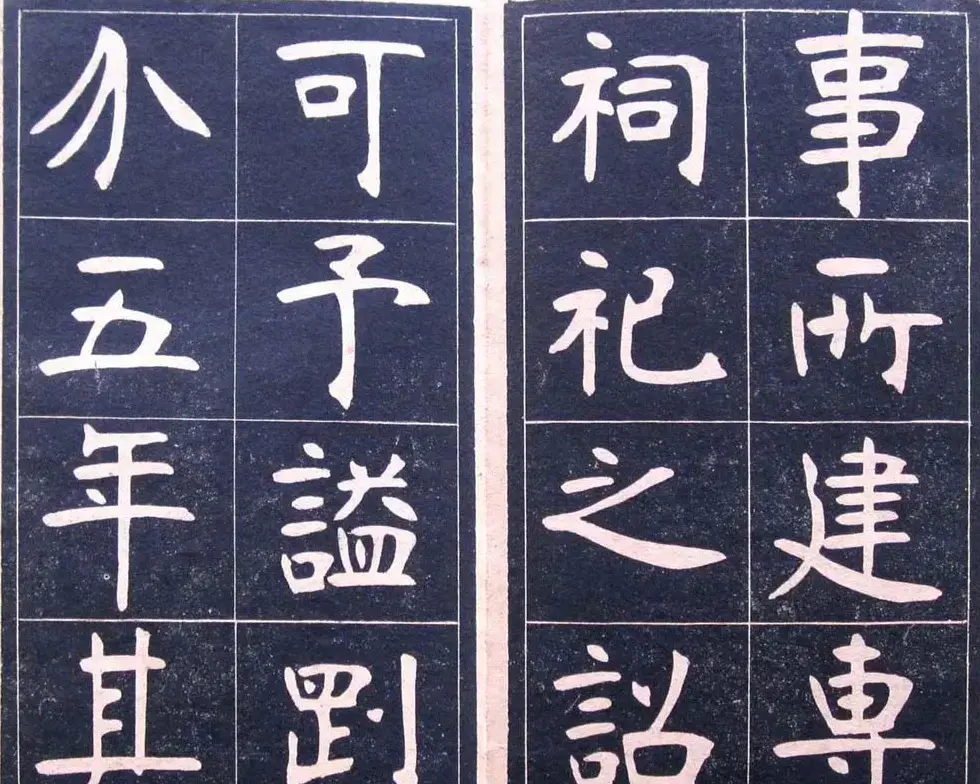 事所建專
祠祀之詔
可予謚剛
五年其